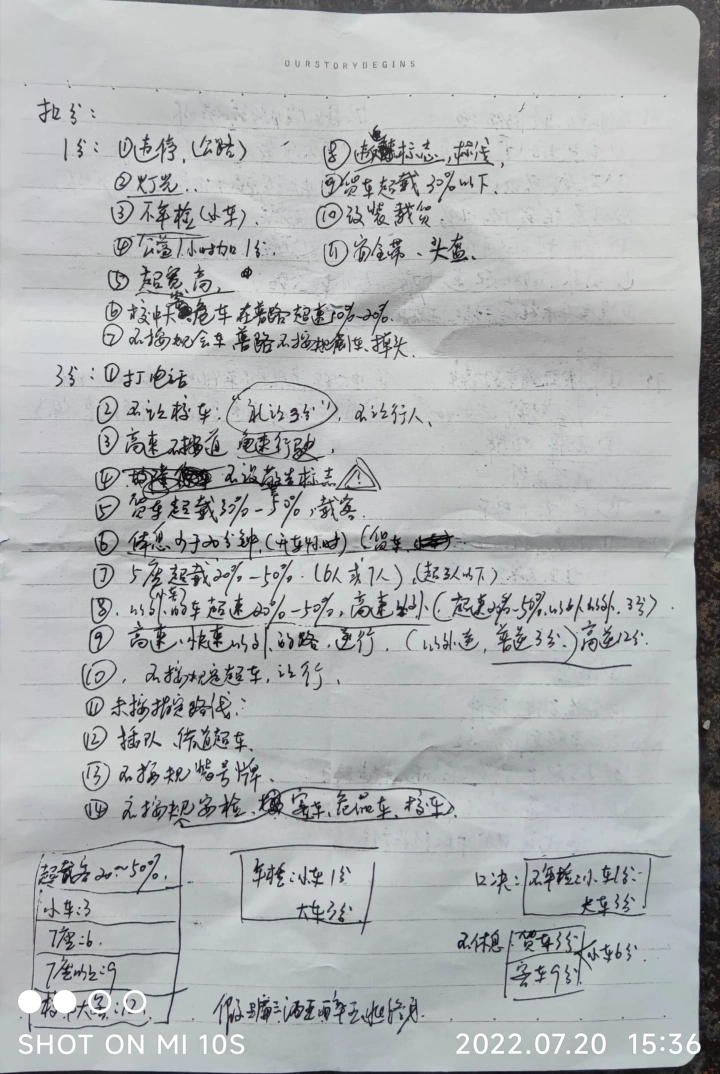 OURSTORYBEGINS
扣分：
1分：①违停，(公路)
②灯光..
③不年检(小车)．
④公益1小时加1分．
⑤超宽高，
⑥校中大危车在普路超速10%-20%.
⑦不按规会车 普路不按规倒车，掉头．
⑧违反标志，标线，
⑨货车超载30%以下．
⑩改装载货．
⑪安全带、头盔．
3分：①打电话
②不让校车："礼让3分"，不让行人、
③高速不按道 龟速行驶，
④不设警告标志
⑤货车超载30%-50%，载客．
⑥休息少于20分钟，(开车4小时)(货车
⑦5座超载20%-50%．(6人或7人)，(超3人以下)．
⑧．以外的车超速20%-50%，高速以外(超速20%-50%，以外，3分)．
(小车)
⑨高速、快速以外的路，逆行，(以外逆，普逆3分．)高逆12分．
⑩，不按规定超车，让行，
⑪未按指定路线：
⑫插队、借道超车、
⑬不按规 号牌．
⑭不按规安检．客车、危品车、校车
超载客20～50%．
小车：3
7座：6．
7座以上：9
大客：12．
年检：小车1分
大车3分
口决：不年检：小车1分．
大车3分
不休息 货车3分
客车9分
小车6分．
SHOT ON MI 10S
2022.07.20 15:36